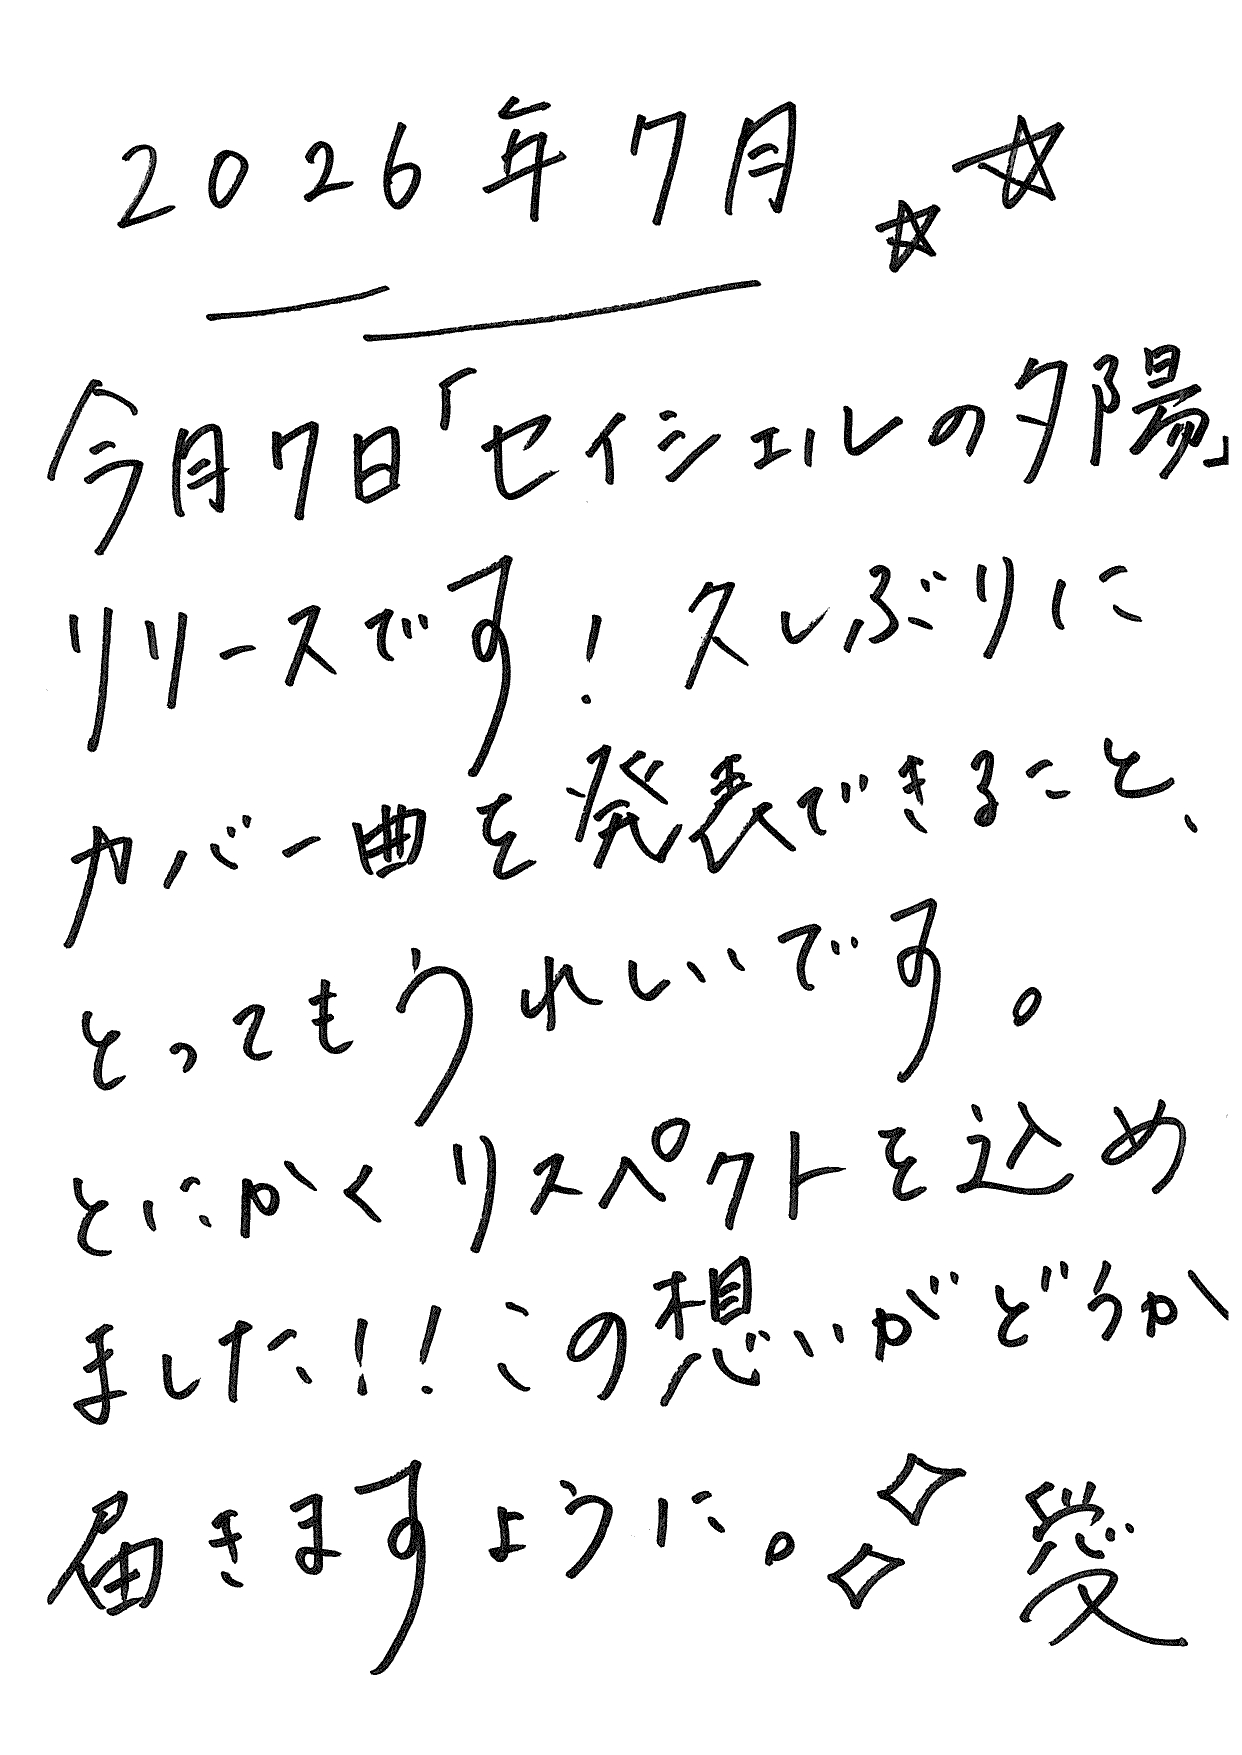 2026年7月 ☆☆
今月7日「セイシェルの夕陽」
リリースです! 久しぶりに
カバー曲を発表できること、
とってもうれしいです。
とにかくリスペクトを込め
ました!! この想いがどうか
届きますように。 愛